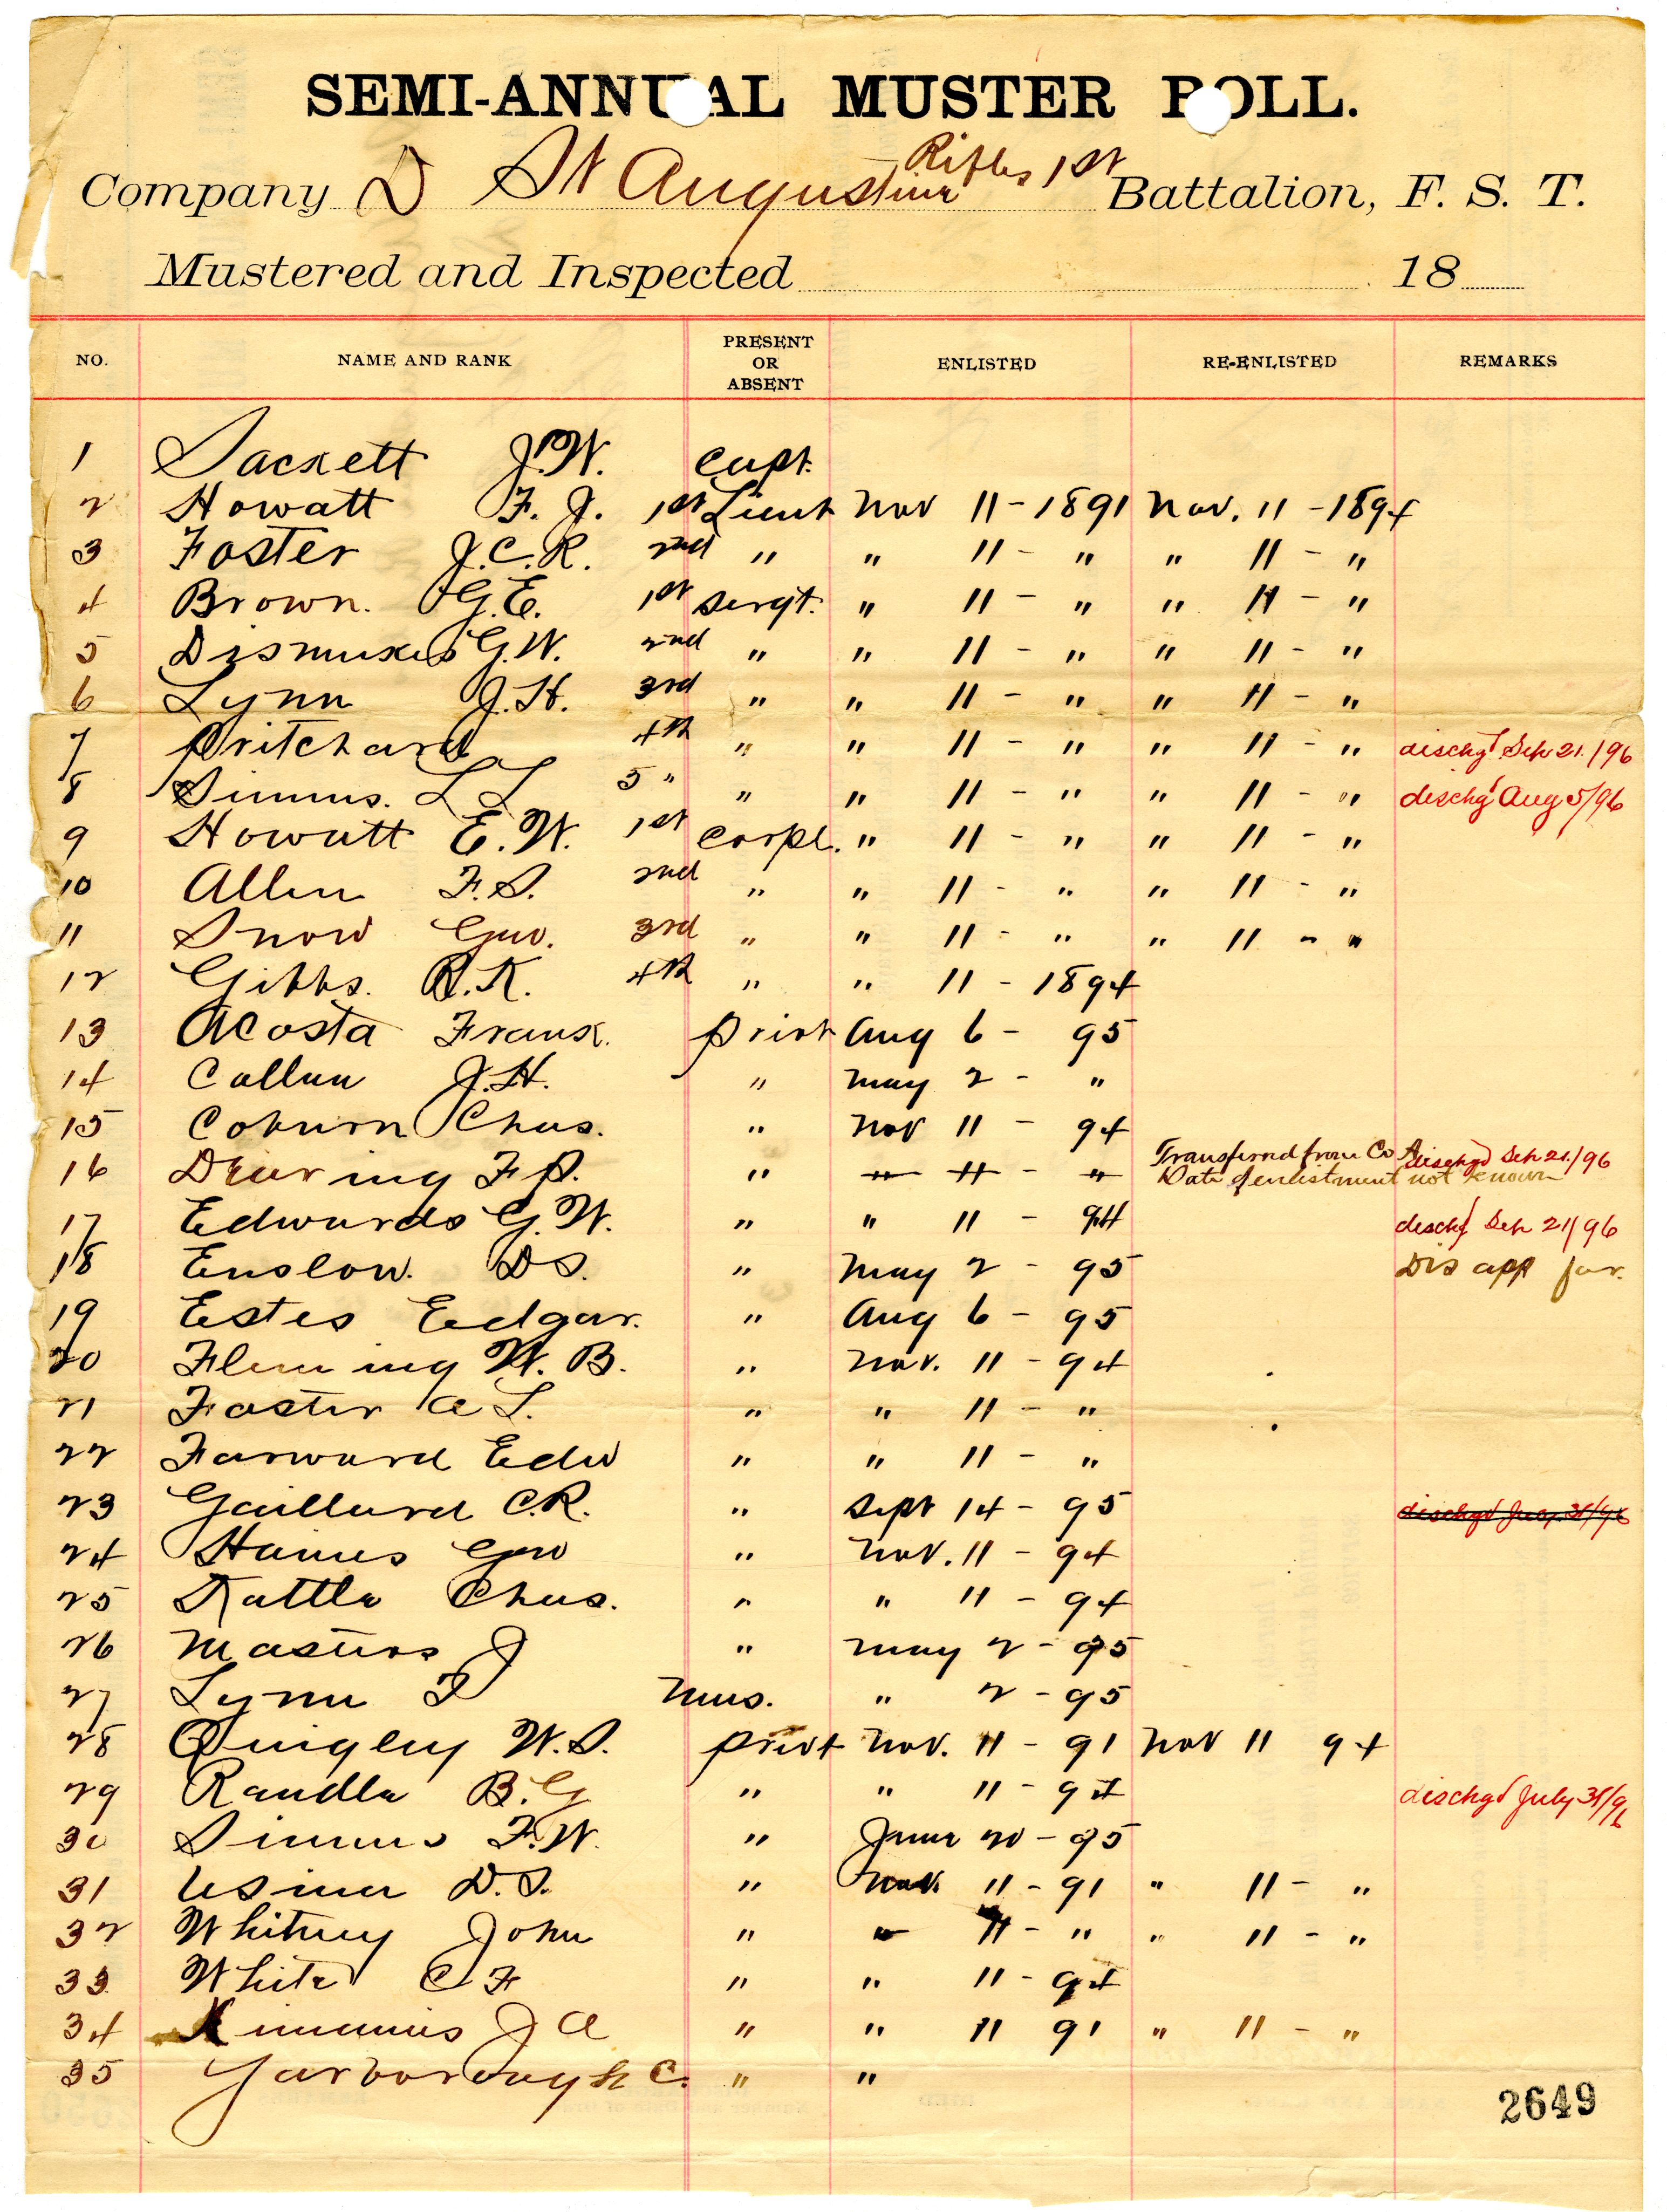 SEMI-ANNUAL MUSTER ROLL.
Company D St Augustine Rifles 1st Battalion, F. S. T.
Mustered and Inspected 18
NO. NAME AND RANK PRESENT OR ABSENT ENLISTED RE-ENLISTED REMARKS
1 Sackett J.W. Capt.
2 Howatt F. J. 1st Lieut Nov 11-1891 Nov. 11-1894
3 Foster J.C.R. 2nd " " 11 - " " 11 - "
4 Brown. G.E. 1st Sergt. " 11 - " " 11 - "
5 Dismukes G.W. 2nd " " 11 - " " 11 - "
6 Lynn J.H. 3rd " " 11 - " " 11 - "
7 Pritchard 4th " " 11 - " " 11 - " dischgd Sep 21./96
8 Simms. L L 5 " " " 11 - " " 11 - " dischgd Aug 5/96
9 Howatt E.W. 1st Corpl. " 11 - " " 11 - "
10 Allen F.S. 2nd " " 11 - " " 11 - "
11 Snow Geo. 3rd " " 11 - " " 11 - "
12 Gibbs. R.K. 4th " " 11 - 1894
13 Acosta Frank. Privt Aug 6 - 95
14 Callan J.H. " May 2 - "
15 Coburn Chas. " Nov 11 - 94
16 Dearing F.P. " " 11 - " Transferred from Co A dischgd Sep 21./96
Date of enlistment not known
17 Edwards G.W. " " 11 - 94 dischgd Sep 21/96
18 Enslow. D S. " May 2 - 95 Dis app for.
19 Estes Eedgar. " Aug 6 - 95
20 Fleming W. B. " Nov. 11 - 94
21 Foster A L. " " 11 - "
22 Forward Edw " " 11 - "
23 Gaillard C.R. " Sept 14 - 95 dischgd July 31/96
24 Haines Geo " Nov. 11 - 94
25 Kattle Chas. " " 11 - 94
26 Masters J " May 2 - 95
27 Lynn F Mus. " 2 - 95
28 Quigley W.S. Privt Nov. 11 - 91 Nov 11 94
29 Randle B.G " " 11 - 94 dischgd July 31/96
30 Simms F.W. " June 20 - 95
31 Usina D.S. " Nov. 11 - 91 " 11 - "
32 Whitney John " " 11 - " " 11 - "
33 White C F " " 11 - 94
34 J A " " 11 91 " 11 - "
35 Yarborough C. " "
2649